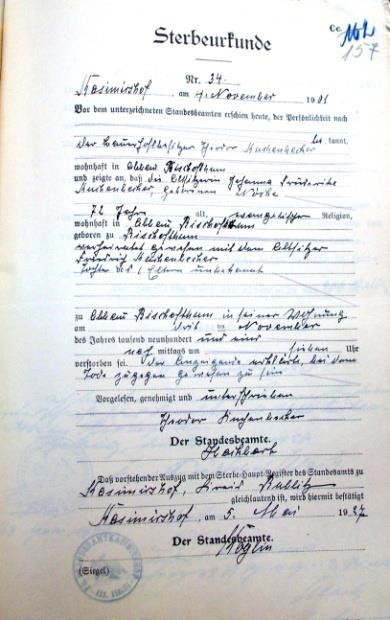 Sterbeurkunde
157
Nr. 34.
Kasimirshof am 4. November 1901
Vor dem unterzeichneten Standesbeamten erschien heute, der Persönlichkeit nach
der Bauerhofsbesitzer Theodor Kuchenbecker be kannt,
wohnhaft in Abbau Bischofthum
und zeigte an, daß die Altsitzerin Johanna Friederike
Kuchenbecker, geborenen
72 Jahre alt, evangelischer Religion,
wohnhaft in Abbau Bischofthum
geboren zu Bischofthum
verheiratet gewesen mit dem Altsitzer
Friedrich Kuchenbecker
Tochter des Eltern unbekannt
zu Abbau Bischofthum in seiner Wohnung
am November
des Jahres tausend neunhundert und eins
nach mittags um sieben Uhr
verstorben sei. Der Anzeigende erklärte, bei dem
Tode zugegen gewesen zu sein
Vorgelesen, genehmigt und unterschrieben
Theodor Kuchenbecker
Der Standesbeamte.
Daß vorstehender Auszug mit dem Sterbe-Haupt-Register des Standesamts zu
Kasimirshof, Kreis Bublitz
gleichlautend ist, wird hiermit bestätigt
Kasimirshof, am 5. Mai 1937
Der Standesbeamte.
(Siegel)